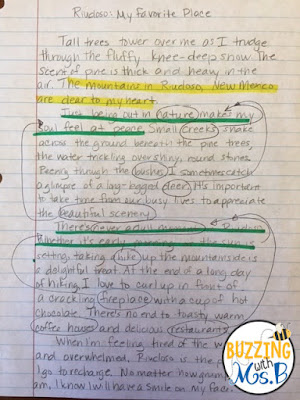 Riudoso: My Favorite Place
Tall trees tower over me as I trudge
through the fluffy knee-deep snow. The
scent of pine is thick and heavy in the
air. The mountains in Riudoso, New Mexico,
are dear to my heart.
Just being out in nature makes my
soul feel at peace. Small creeks snake
across the ground beneath the pine trees,
the water trickling over shiny, round stones.
Peering through the bushes, I sometimes catch
a glimpse of a large-legged deer. It's important
to take time from our busy lives to appreciate
the beautiful scenery.
There's never a dull moment in
Whether it's early morning or the sun is
setting, taking a hike up the mountainside is
a delightful treat. At the end of a long day
of hiking, I love to curl up in front of
a crackling fireplace with a cup of hot
chocolate. There's no end to toasty warm
coffee houses and delicious restaurants.
When I'm feeling tired of the
and overwhelmed, Riudoso is the
I go to recharge. No matter how
am, I know I will have a smile on my face.
BUZZING
with
Ms. B